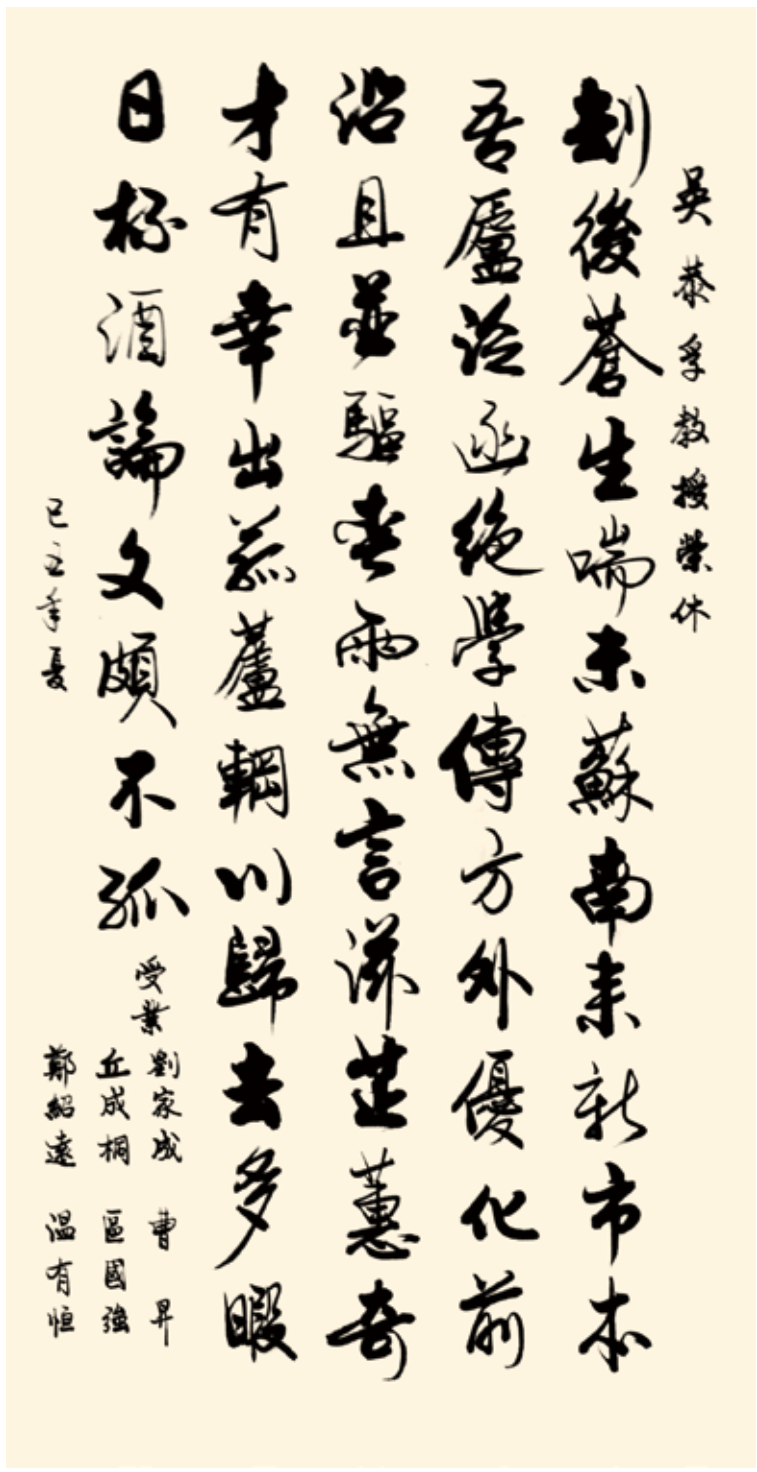 吳恭孚教授榮休
刦後蒼生喘未蘇南來新市本
吾廬泛函絕學傳方外優化前
沿且並驅春雨無言滋芷蕙奇
才有幸出菰蘆輞川歸去多暇
日杯酒論文頗不孤
受業
劉家成 曹昇
丘成桐 區國強
鄭紹遠 溫有恒
己丑年夏